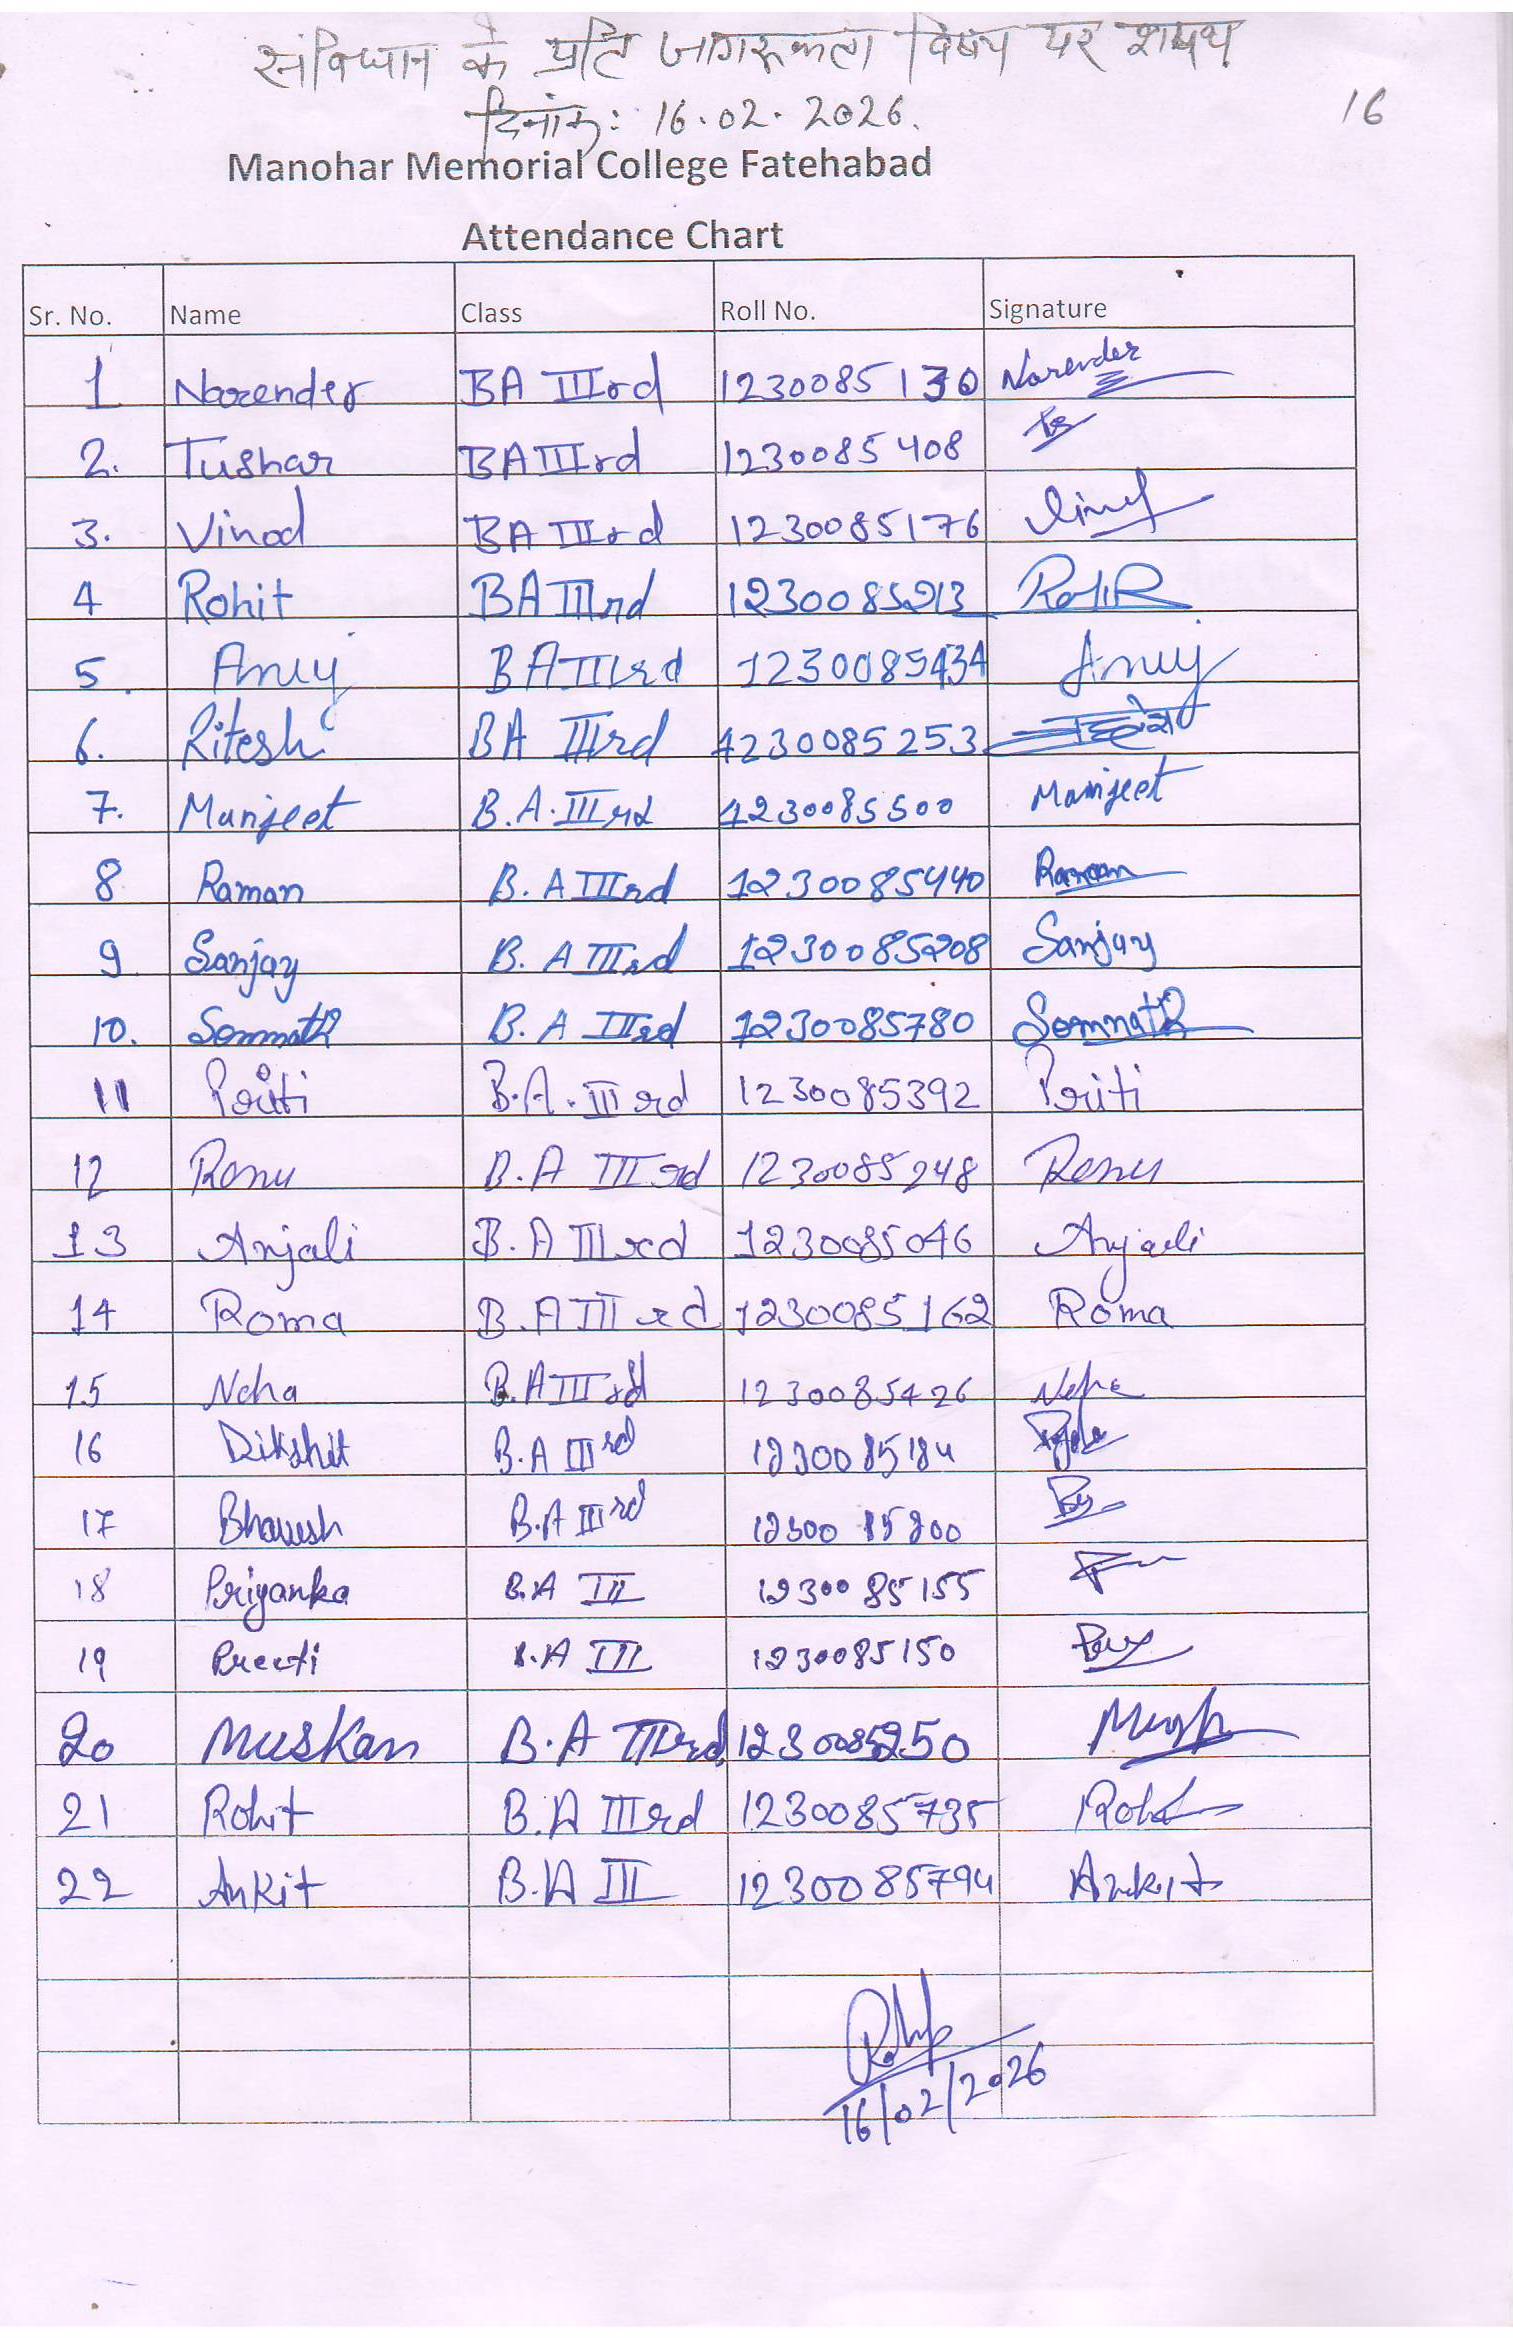 संविधान के प्रति जागरूकता विषय पर शपथ
दिनांक: 16.02.2026.
16
Manohar Memorial College Fatehabad
Attendance Chart
Sr. No. Name Class Roll No. Signature
1 Narender BA IIIrd 1230085130 Narender
2. Tushar BA IIIrd 1230085408
3. Vinod BA IIIrd 1230085176
4 Rohit BA IIIrd 1230085213 Rohit
5. Anuj BA IIIrd 1230085434 Anuj
6. Ritesh BA IIIrd 1230085253
7. Manjeet B.A.IIIrd 1230085500 Manjeet
8 Raman B.A IIIrd 1230085440 Raman
9 Sanjay B.A IIIrd 1230085208 Sanjay
10. Somnath B.A IIIrd 1230085780 Somnath
11 Priti B.A.III rd 1230085392 Priti
12 Renu B.A III rd 1230085248 Renu
13 Anjali B.A IIIrd 1230085046 Anjali
14 Roma B.A III rd 1230085162 Roma
15 Neha B.A III rd 1230085426 Neha
16 Dikshit B.A IIIrd 1230085184
17 Bhavesh B.A IIIrd 1230085200
18 Priyanka B.A III 1230085155
19 Preeti B.A III 1230085150
20 Muskan B.A IIIrd 1230085250
21 Rohit B.A IIIrd 1230085735 Rohit
22 Ankit B.A III 1230085794 Ankit
16/02/2026